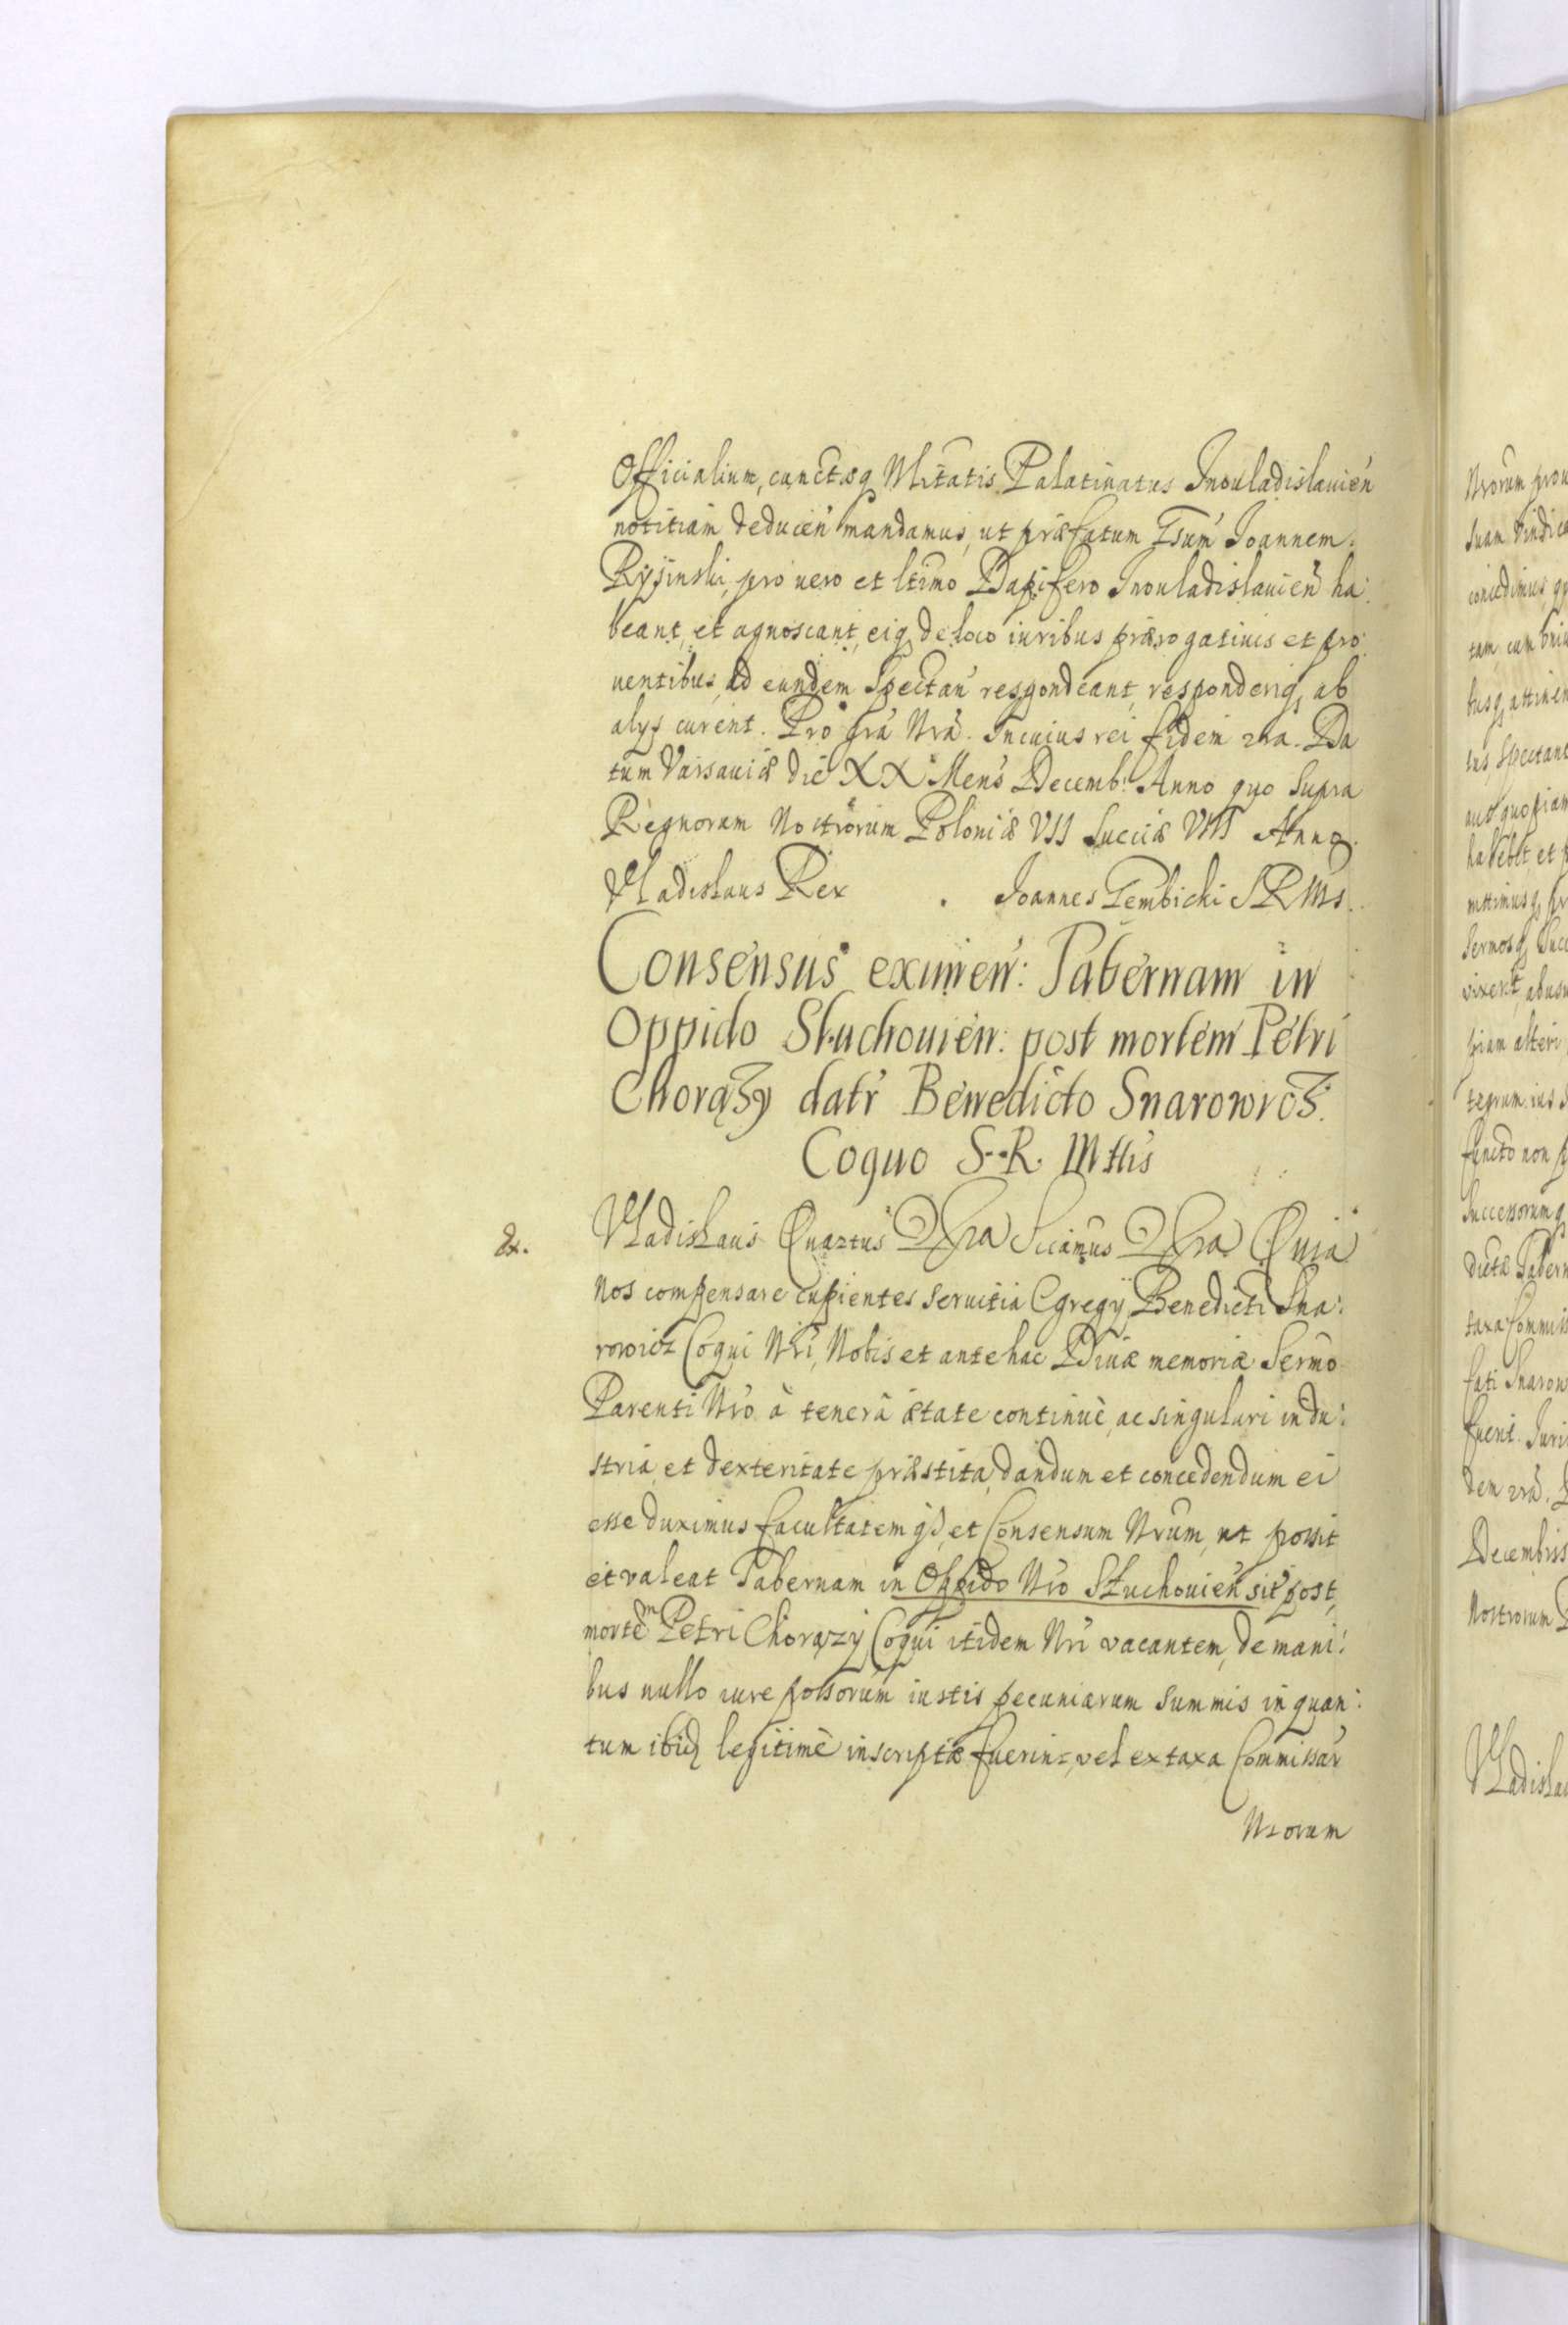 Officialium, cunctæq Nlitatis Palatinatus Inouladislauień
notitiam deducen mandamus, ut præfatum Gsum Joannem
Rysinski, pro uero et ltimo Dapifero Inouladislauień ha:
beant, et agnoscant, eiq de loco iuribus prærogatiuis et pro:
uentibus, ad eundem Spectań respondeant, responderiq, ab
alys curent. Pro gra Nra. Incuius rei fidem 2ra. Da
tum Varsauiæ die XX Mens Decemb: Anno quo supra
Regnorum Nostrorum Poloniæ VII Sueciæ VIII Anno
Vladislaus Rex . Joannes Gembicki SRMs.
Consensus eximen: Tabernam in
Oppido Stuchouien: post mortem Petri
Chorązy datr Benedicto Snarowicz.
Coquo S. R. Mttis
&x. Vladislaus Quartus &ra Sicamus &ra Quia
Nos compensare cupientes seruitia Egregÿ Benedicti Sna:
rowicz Coqui Nri, Nobis et antehac Diuæ memoriæ Sermo
Parenti Nro à tenerâ ætate continuè, ac singulari indu:
stria, et dexteritate præstita, dandum et concedendum ei
esse duximus facultatem qd, et Consensum Nrum, ut possit
et valeat Tabernam in Oppido Nro Stuchouień sit post,
mortem Petri Chorązy Coqui itidem Nri vacantem, de mani:
bus nullo iure possorum iustis pecuniarum summis in quan:
tum ibid legitimè inscriptæ fuerint, vel ex taxa Commissar
Nrorum
Nrorum
Suam
tam, cum
Spectant
ha bebit, et
piam alteri
tegrum ius
functo non
Successorum q
dictæ Tabern
taxa Commiss
fati Snarow
fuerit. Juri
dem 2ra.
Decembris
Nostrorum
Vladislau